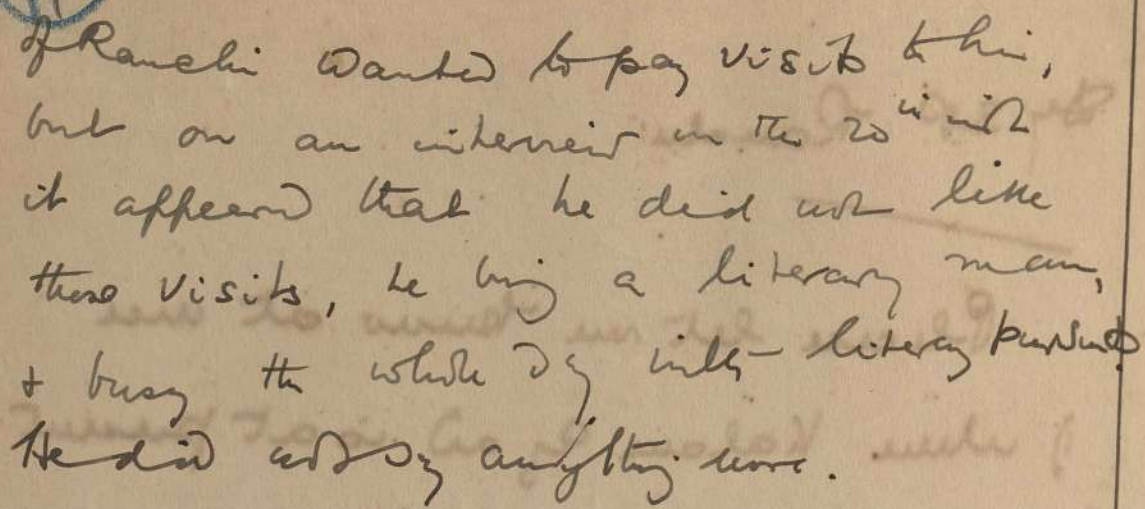 of Ranchi wanted to pay visits to him,
but on an interview on the 20th inst
it appeared that he did not like
these visits, he being a literary man,
& busy the whole day with literary pursuits.
He did not say anything more.